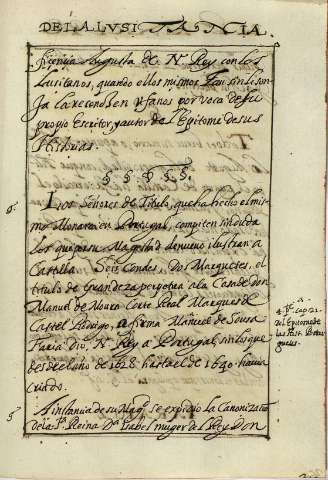 DE LA LUSITANCIA.
ficencia Augusta de N.º Rey con los
Lusitanos, quando ellos mismos
la reconocen ufanos por voca de su
propio Escritor, y autor de l Epitome de sus
Historias.
§ § § § §
6. Los Señores de Titulo, que ha hecho el mis
mo Monarca en Portugal, compiten sin duda
los que por su Magestad de nuevo ilustran a
Castilla. Seis Condes, Dos Marqueses, el
titulo de grandeza perpetua a la Casa de don
Manuel de Moura Corte Real Marques de
Castel Rodrigo, afirma Manuel de Sousa
Faria dio N.º Rey a Portugal, sin los que
desde el año de 1628 hasta el de 1640 havia
criado.
4. P. cap. 21.
del Epitome de
las Hist. Portu
guesas.
5 A instancia de su Mag.d se expidio la Canonizacion
de la S.ta Reina D.ª Isabel muger del Rey Don